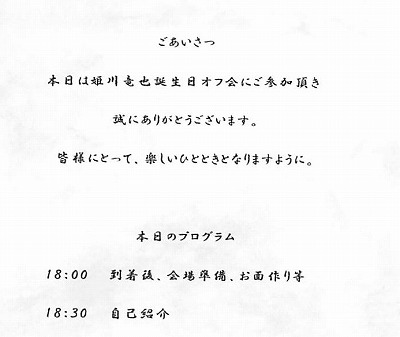 ごあいさつ
本日は姫川竜也誕生日オフ会にご参加頂き
誠にありがとうございます。
皆様にとって、楽しいひとときとなりますように。
本日のプログラム
18:00 到着後、会場準備、お面作り等
18:30 自己紹介